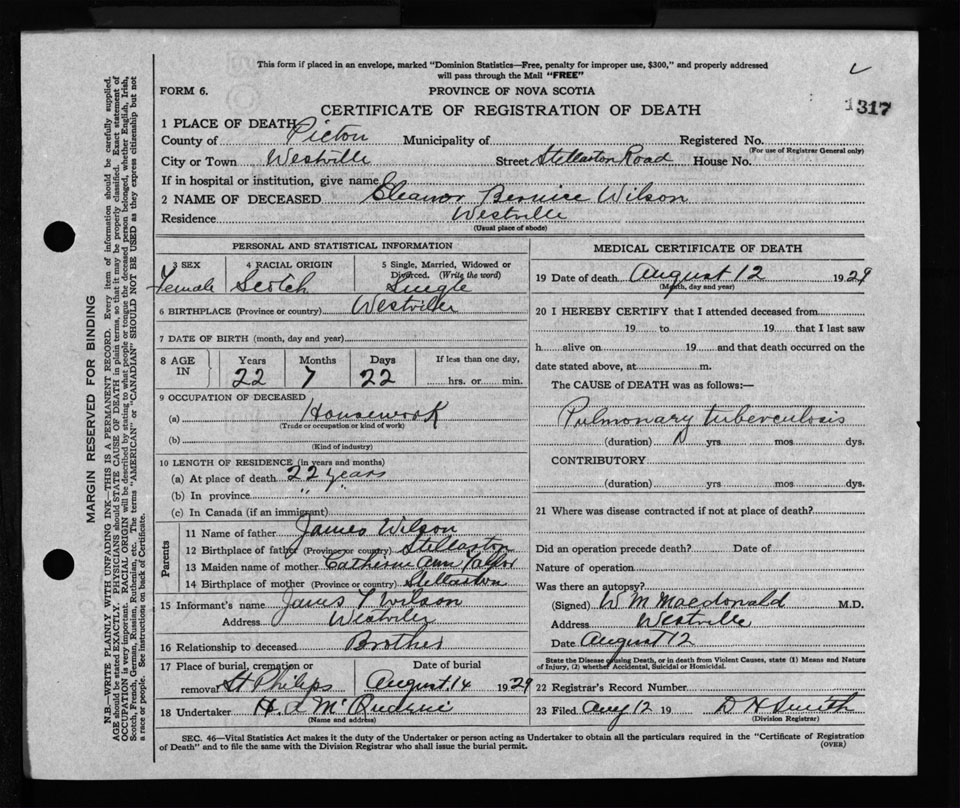 This form if placed in an envelope, marked "Dominion Statistics—Free, penalty for improper use, $300," and properly addressed
will pass through the Mail "FREE"
FORM 6.
PROVINCE OF NOVA SCOTIA
CERTIFICATE OF REGISTRATION OF DEATH
1317
1 PLACE OF DEATH
County of Pictou Municipality of Registered No.
(For use of Registrar General only)
City or Town Westville Street Stellarton Road House No.
If in hospital or institution, give name
2 NAME OF DECEASED Eleanor Bernice Wilson
Residence Westville
(Usual place of abode)
PERSONAL AND STATISTICAL INFORMATION
3 SEX 4 RACIAL ORIGIN 5 Single, Married, Widowed or Divorced. (Write the word)
Female Scotch Single
6 BIRTHPLACE (Province or country) Westville
7 DATE OF BIRTH (month, day and year)
8 AGE IN Years Months Days If less than one day,
22 7 22 hrs. or min.
9 OCCUPATION OF DECEASED
(a) Housework
(Trade or occupation or kind of work)
(b)
(Kind of industry)
10 LENGTH OF RESIDENCE (in years and months)
(a) At place of death 22 years
(b) In province " "
(c) In Canada (if an immigrant)
Parents
11 Name of father James Wilson
12 Birthplace of father (Province or country) Stellarton
13 Maiden name of mother Catherine Ann
14 Birthplace of mother (Province or country) Stellarton
15 Informant's name James Wilson
Address Westville
16 Relationship to deceased Brother
17 Place of burial, cremation or Date of burial
removal St Philips August 14 1929
18 Undertaker H. L
(Name and address)
MEDICAL CERTIFICATE OF DEATH
19 Date of death August 12 1929
(Month, day and year)
20 I HEREBY CERTIFY that I attended deceased from
19 to 19 that I last saw
h alive on 19 and that death occurred on the
date stated above, at m.
The CAUSE of DEATH was as follows:—
Pulmonary tuberculosis
(duration) yrs. mos. dys.
CONTRIBUTORY
(duration) yrs. mos. dys.
21 Where was disease contracted if not at place of death?
Did an operation precede death? Date of
Nature of operation
Was there an autopsy?
(Signed) W M Macdonald M.D.
Address Westville
Date August 12
State the Disease Causing Death, or in death from Violent Causes, state (1) Means and Nature
of Injury, (2) whether Accidental, Suicidal or Homicidal.
22 Registrar's Record Number
23 Filed Aug 12 19 D H Smith
(Division Registrar)
SEC. 46—Vital Statistics Act makes it the duty of the Undertaker or person acting as Undertaker to obtain all the particulars required in the "Certificate of Registration
of Death" and to file the same with the Division Registrar who shall issue the burial permit.
(OVER)
MARGIN RESERVED FOR BINDING
N.B—WRITE PLAINLY WITH UNFADING INK—THIS IS A PERMANENT RECORD. Every item of information should be carefully supplied.
AGE should be stated EXACTLY. PHYSICIANS should STATE CAUSE OF DEATH in plain terms, so that it may be properly classified. Exact statement of
OCCUPATION is very important. RACIAL ORIGIN will be described by stating to what people or tongue the deceased person belonged, whether English, Irish,
Scotch, French, German, Russian, Ruthenian, etc. The terms "AMERICAN" or "CANADIAN" SHOULD NOT BE USED as they express citizenship but not
a race or people. See instructions on back of Certificate.